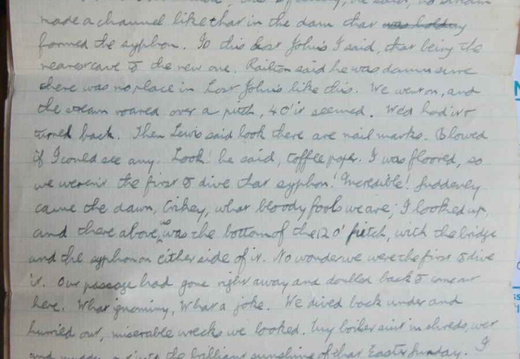 made a channel like that in the dam that was holding
formed the syphon. Is this Lost John's I said, that being the
nearest cave to the new one. Railton said he was damn sure
there was no place in Lost John's like this. We went on, and
the stream roared over a pitch, 40' it seemed. We'd had it &
turned back. Then Lewis said look there are nail marks. Blowed
if I could see any. Look! he said, toffee paper. I was floored, so
we weren't the first to dive that syphon! Incredible! Suddenly
came the dawn, Crikey, what bloody fools we are; I looked up,
and there above, was the bottom of the 120' pitch, with the bridge
and the syphon on either side of it. No wonder we were the first to dive
it. Our passage had gone right away and doubled back to come out
here. What ignominy, what a joke. We dived back under and
hurried out, miserable wrecks we looked. My boiler suit in shreds, wet
and out into the brilliant sunshine of that Easter Sunday. I